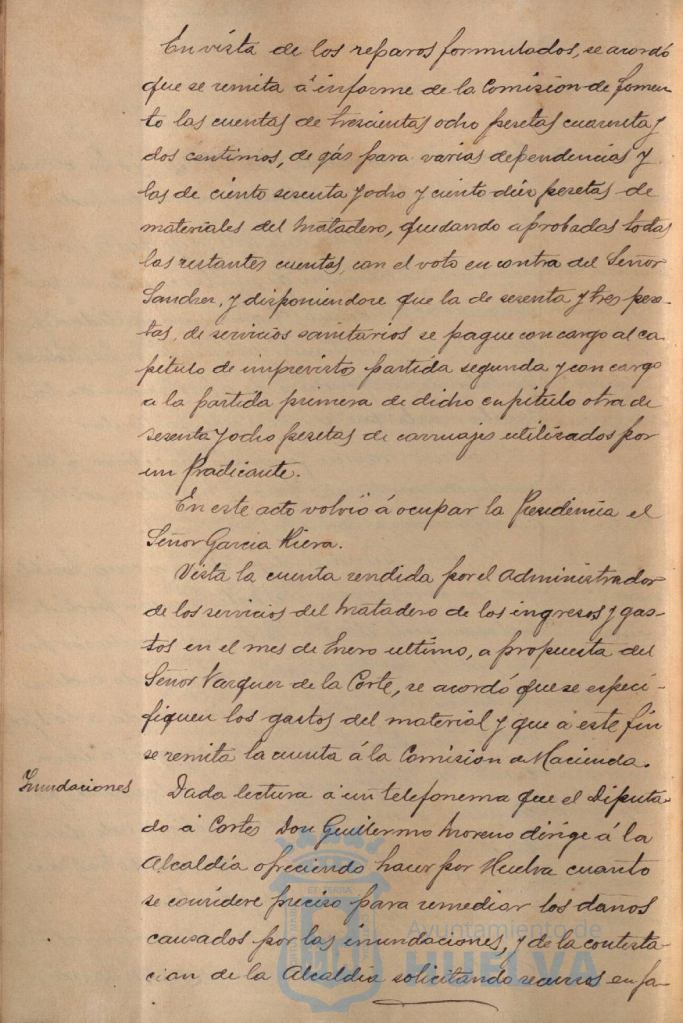 En vista de los reparos formulados, se acordó
que se remita á informe de la Comision de fomen-
to las cuentas de trescientas ocho pesetas cuarenta y
dos centimos, de gás para varias dependencias y
las de ciento sesenta y ocho y ciento diez pesetas de
materiales del Matadero, quedando aprobadas todas
las restantes cuentas, con el voto en contra del Señor
Sanchez, y disponiendose que la de sesenta y tres pese-
tas, de servicios sanitarios se pague con cargo al ca-
pitulo de imprevistos partida segunda y con cargo
a la partida primera de dicho capitulo otra de
sesenta y ocho pesetas de carruajes utilizados por
un Practicante.
En este acto volvió á ocupar la Presidencia el
Señor Garcia Riera.
Vista la cuenta rendida por el Administrador
de los servicios del Matadero de los ingresos y gas-
tos en el mes de Enero ultimo, a propuesta del
Señor Vazquez de la Corte, se acordó que se especi-
fiquen los gastos del material y que á este fin
se remita la cuenta á la Comision de Hacienda.
Inundaciones
Dada lectura á un telefonema que el Diputa-
do á Cortes Don Guillermo Moreno dirige á la
Alcaldía ofreciendo hacer por Huelva cuanto
se considere preciso para remediar los daños
causados por las inundaciones, y de la contesta-
cion de la Alcaldia solicitando recursos en fa-
Ayuntamiento de
HUELVA